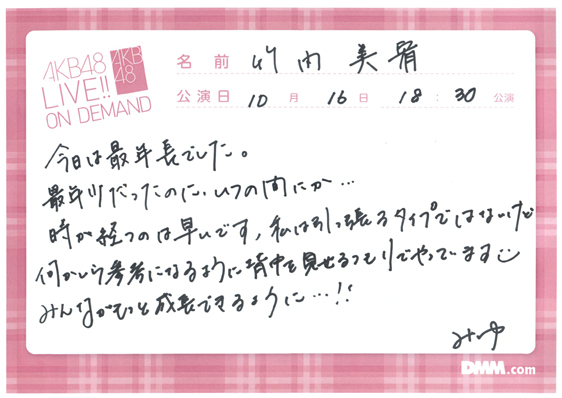 AKB48
LIVE!!
ON DEMAND
AKB
48
名前 竹内美宥
公演日 10月16日 18:30公演
今日は最年長でした。
最年少だったのに、いつの間にか…
時が経つのは早いです、私は引っ張るタイプではないけど
何かしら参考になるように背中を見せるつもりでやっています
みんながもっと成長できるように…!!
みゆ
DMM.com